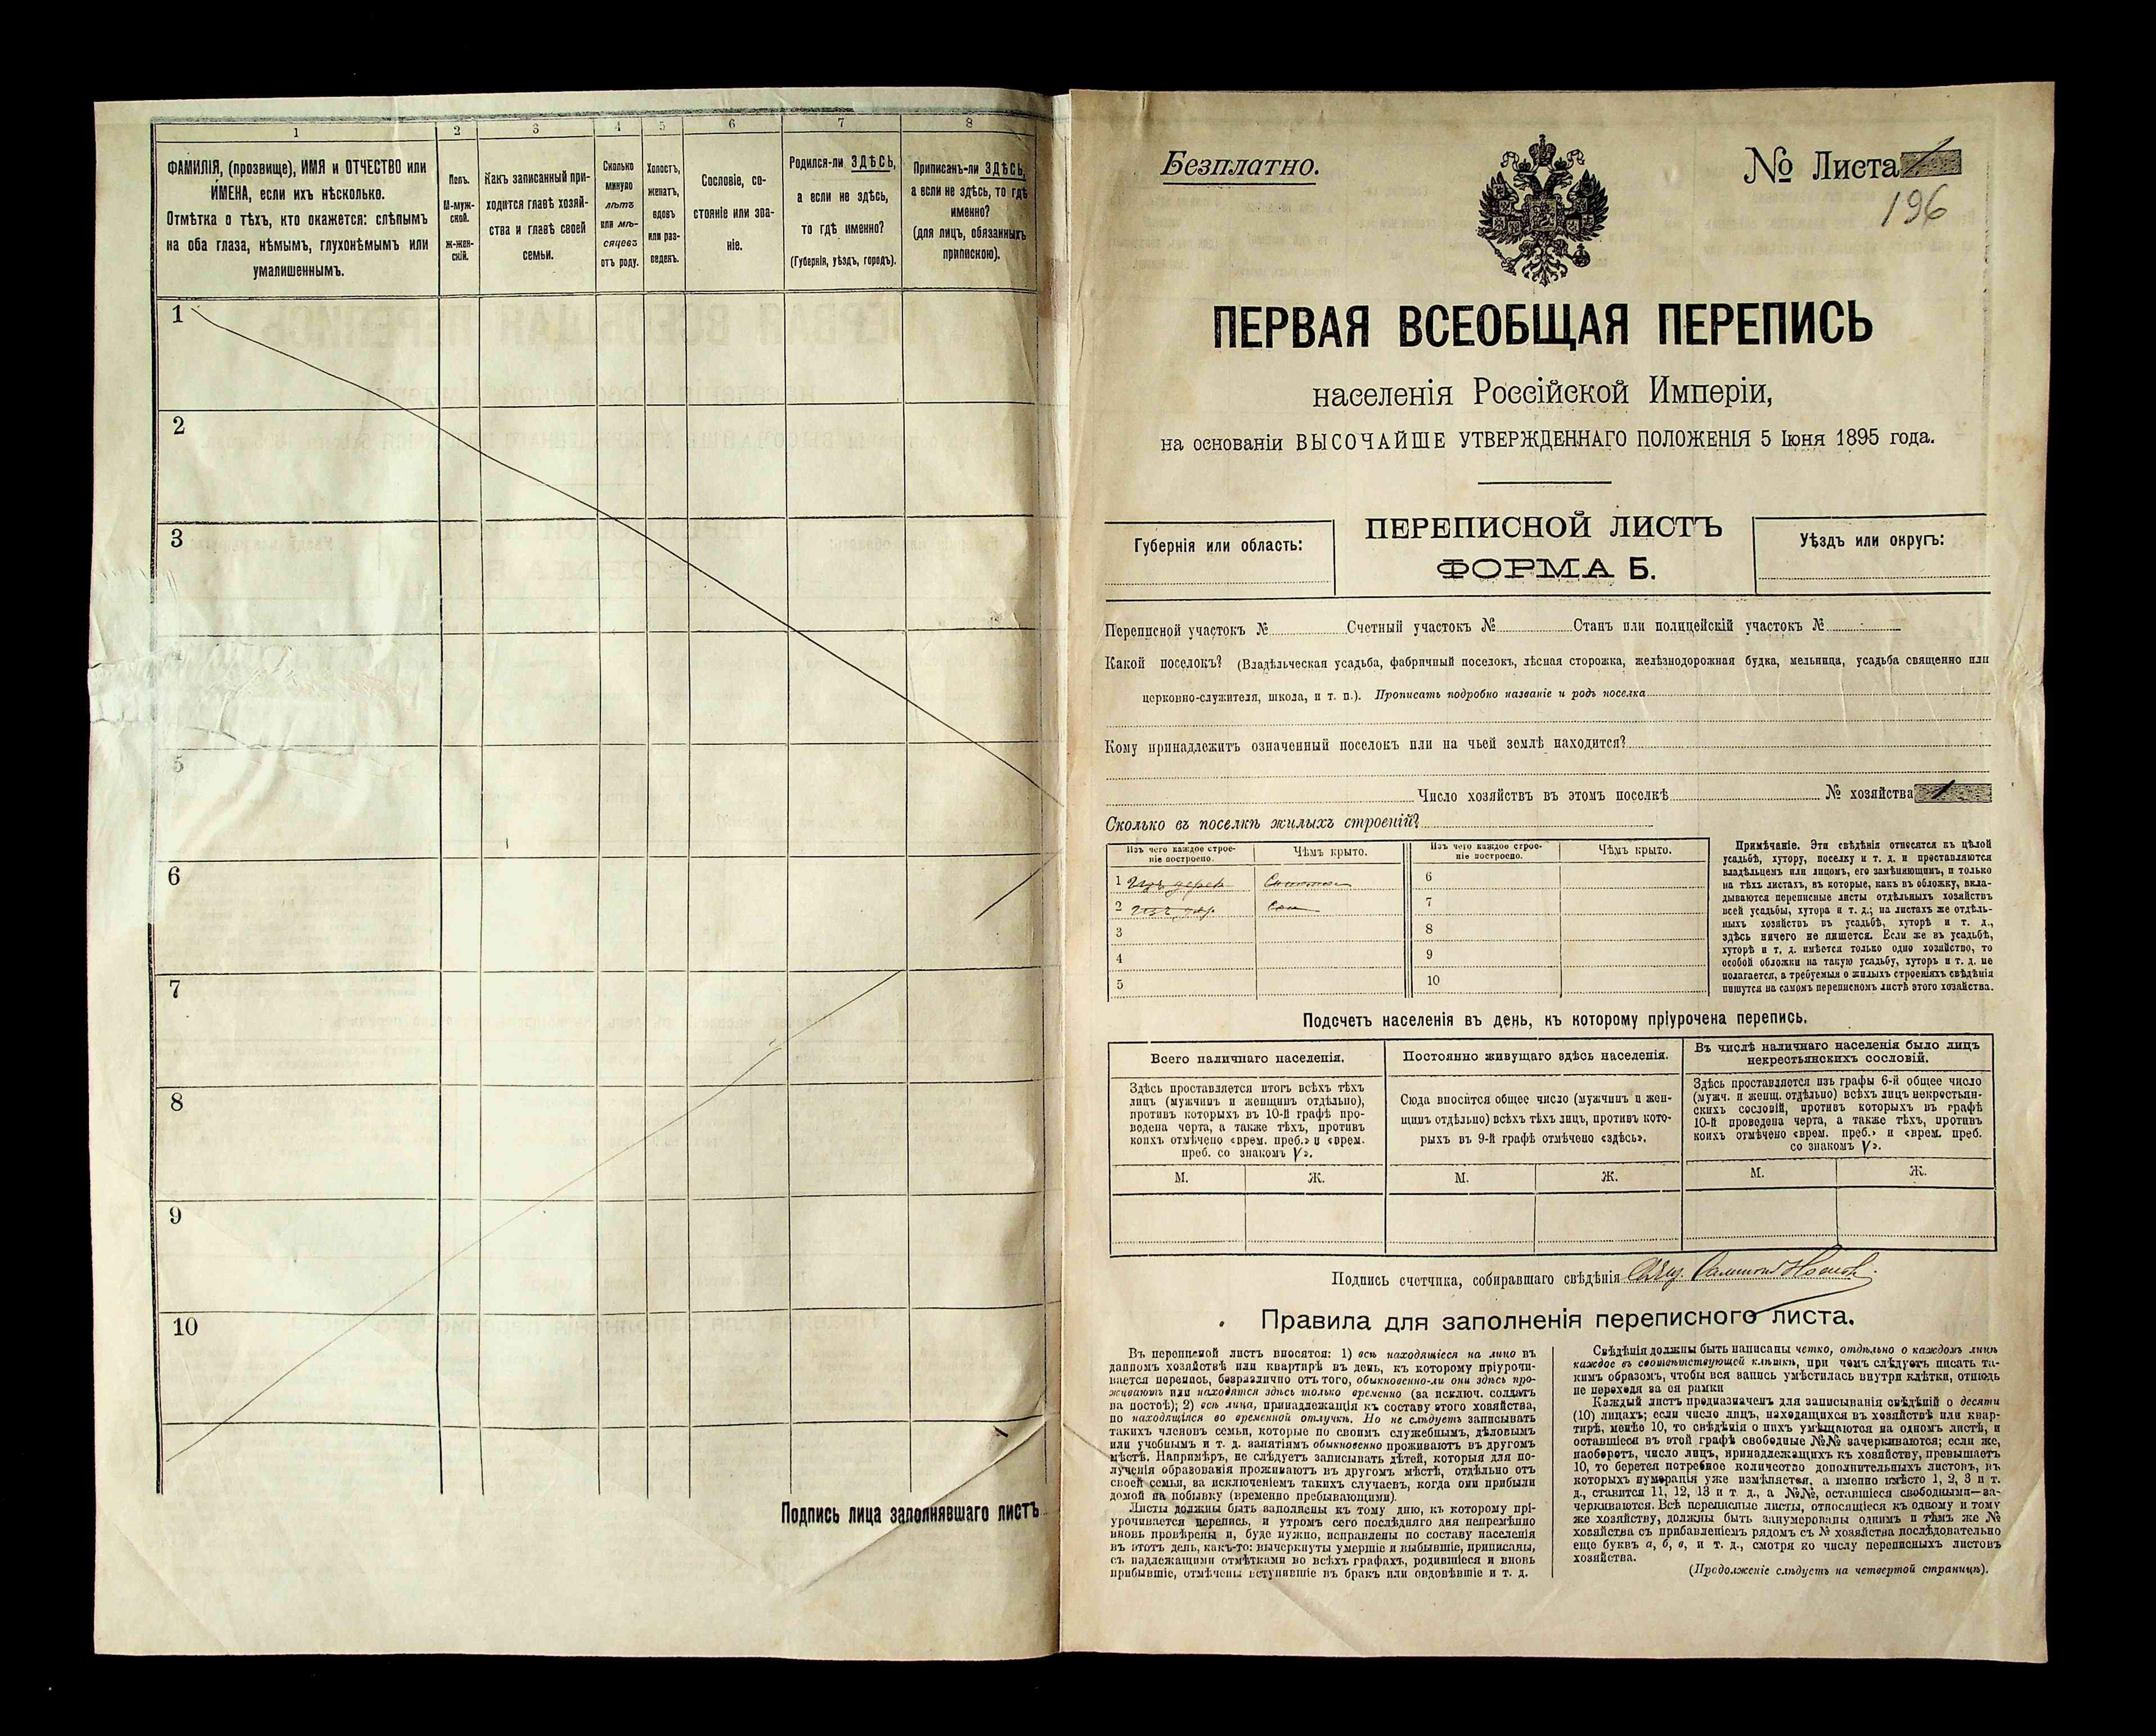 1
2
3
4
5
6
7
8
ФАМИЛІЯ, (прозвище), ИМЯ и ОТЧЕСТВО или
ИМЕНА, если ихъ нѣсколько.
Отмѣтка о тѣхъ, кто окажется: слѣпымъ
на оба глаза, нѣмымъ, глухонѣмымъ или
умалишеннымъ.
Полъ.
М-муж-
ской.
Ж-жен-
скій.
Какъ записанный при-
ходится главѣ хозяй-
ства и главѣ своей
семьи.
Сколько
минуло
лѣтъ
или мѣ-
сяцевъ
отъ роду.
Холостъ,
женатъ,
вдовъ
или раз-
веденъ.
Сословіе, со-
стояніе или зва-
ніе.
Родился-ли ЗДѢСЬ,
а если не здѣсь,
то гдѣ именно?
(Губернія, уѣздъ, городъ).
Приписанъ-ли ЗДѢСЬ,
а если не здѣсь, то гдѣ
именно?
(для лицъ, обязанныхъ
припискою).
1
2
3
5
6
7
8
9
10
Подпись лица заполнявшаго листъ
Безплатно.
№ Листа 1
196
ПЕРВАЯ ВСЕОБЩАЯ ПЕРЕПИСЬ
населенія Россійской Имперіи,
на основаніи ВЫСОЧАЙШЕ УТВЕРЖДЕННАГО ПОЛОЖЕНІЯ 5 Іюня 1895 года.
Губернія или область:
ПЕРЕПИСНОЙ ЛИСТЪ
ФОРМА Б.
Уѣздъ или округъ:
Переписной участокъ № Счетный участокъ № Станъ или полицейскій участокъ №
Какой поселокъ? (Владѣльческая усадьба, фабричный поселокъ, лѣсная сторожка, желѣзнодорожная будка, мельница, усадьба священно или
церковно-служителя, школа, и т. п.). Прописать подробно названіе и родъ поселка
Кому принадлежитъ означенный поселокъ или на чьей землѣ находится?
Число хозяйствъ въ этомъ поселкѣ № хозяйства 1
Сколько въ поселкѣ жилыхъ строеній?
Изъ чего каждое строе-
ніе построено.
Чѣмъ крыто.
Изъ чего каждое строе-
ніе построено.
Чѣмъ крыто.
1 Изъ дерев.
2 Изъ
3
4
5
6
7
8
9
10
Примѣчаніе. Эти свѣдѣнія относятся къ цѣлой
усадьбѣ, хутору, поселку и т. д. и проставляются
владѣльцемъ или лицомъ, его замѣняющимъ, и только
на тѣхъ листахъ, въ которые, какъ въ обложку, вкла-
дываются переписные листы отдѣльныхъ хозяйствъ
всей усадьбы, хутора и т. д.; на листахъ же отдѣль-
ныхъ хозяйствъ въ усадьбѣ, хуторѣ и т. д.,
здѣсь ничего не пишется. Если же въ усадьбѣ,
хуторѣ и т. д. имѣется только одно хозяйство, то
особой обложки на такую усадьбу, хуторъ и т. д. не
полагается, а требуемыя о жилыхъ строеніяхъ свѣдѣнія
пишутся на самомъ переписномъ листѣ этого хозяйства.
Подсчетъ населенія въ день, къ которому пріурочена перепись.
Всего наличнаго населенія.
Здѣсь проставляется итогъ всѣхъ тѣхъ
лицъ (мужчинъ и женщинъ отдѣльно),
противъ которыхъ въ 10-й графѣ про-
ведена черта, а также тѣхъ, противъ
коихъ отмѣчено «врем. преб.» и «врем.
преб. со знакомъ V».
М. Ж.
Постоянно живущаго здѣсь населенія.
Сюда вносится общее число (мужчинъ и жен-
щинъ отдѣльно) всѣхъ тѣхъ лицъ, противъ кото-
рыхъ въ 9-й графѣ отмѣчено «здѣсь».
М. Ж.
Въ числѣ наличнаго населенія было лицъ
некрестьянскихъ сословій.
Здѣсь проставляется изъ графы 6-й общее число
(мужч. и женщ. отдѣльно) всѣхъ лицъ некрестьян-
скихъ сословій, противъ которыхъ въ графѣ
10-й проведена черта, а также тѣхъ, противъ
коихъ отмѣчено «врем. преб.» и «врем. преб.
со знакомъ V».
М. Ж.
Подпись счетчика, собиравшаго свѣдѣнія
Правила для заполненія переписного листа.
Въ переписной листъ вносятся: 1) всѣ находящіеся на лицо въ
данномъ хозяйствѣ или квартирѣ въ день, къ которому пріурочи-
вается перепись, безразлично отъ того, обыкновенно-ли они здѣсь про-
живаютъ или находятся здѣсь только временно (за исключ. солдатъ
на постоѣ); 2) всѣ лица, принадлежащія къ составу этого хозяйства,
но находящіяся во временной отлучкѣ. Но не слѣдуетъ записывать
такихъ членовъ семьи, которые по своимъ служебнымъ, дѣловымъ
или учебнымъ и т. д. занятіямъ обыкновенно проживаютъ въ другомъ
мѣстѣ. Напримѣръ, не слѣдуетъ записывать дѣтей, которыя для по-
лученія образованія проживаютъ въ другомъ мѣстѣ, отдѣльно отъ
своей семьи, за исключеніемъ такихъ случаевъ, когда они прибыли
домой на побывку (временно пребывающими).
Листы должны быть заполнены къ тому дню, къ которому прі-
урочивается перепись, и утромъ сего послѣдняго дня непремѣнно
вновь провѣрены и, буде нужно, исправлены по составу населенія
въ этотъ день, какъ-то: вычеркнуты умершіе и выбывшіе, приписаны,
съ надлежащими отмѣтками во всѣхъ графахъ, родившіеся и вновь
прибывшіе, отмѣчены вступившіе въ бракъ или овдовѣвшіе и т. д.
Свѣдѣнія должны быть написаны четко, отдѣльно о каждомъ лицѣ
каждое въ соотвѣтствующей клѣткѣ, при чемъ слѣдуетъ писать та-
кимъ образомъ, чтобы вся запись умѣстилась внутри клѣтки, отнюдь
не переходя за ея рамки
Каждый листъ предназначенъ для записыванія свѣдѣній о десяти
(10) лицахъ; если число лицъ, находящихся въ хозяйствѣ или квар-
тирѣ, менѣе 10, то свѣдѣнія о нихъ умѣщаются на одномъ листѣ, и
оставшіеся въ этой графѣ свободные №№ зачеркиваются; если же,
наоборотъ, число лицъ, принадлежащихъ къ хозяйству, превышаетъ
10, то берется потребное количество дополнительныхъ листовъ, въ
которыхъ нумерація уже измѣняется, а именно вмѣсто 1, 2, 3 и т.
д., ставится 11, 12, 13 и т. д., а №№, оставшіеся свободными—за-
черкиваются. Всѣ переписные листы, относящіеся къ одному и тому
же хозяйству, должны быть занумерованы однимъ и тѣмъ же №
хозяйства съ прибавленіемъ рядомъ съ № хозяйства послѣдовательно
еще буквъ а, б, в, и т. д., смотря ко числу переписныхъ листовъ
хозяйства.
(Продолженіе слѣдуетъ на четвертой страницѣ).